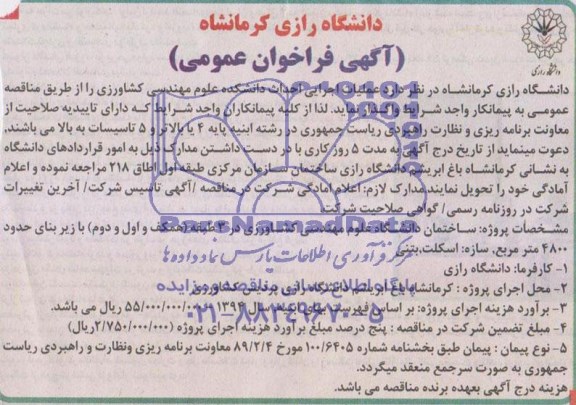 دانشگاه رازی کرمانشاه
(آگهی فراخوان عمومی)
دانشگاه رازی
دانشگاه رازی کرمانشاه در نظر دارد عملیات اجرایی احداث دانشکده علوم مهندسی کشاورزی را از طریق مناقصه
عمومی به پیمانکار واجد شرایط واگذار نماید. لذا از کلیه پیمانکاران واجد شرایط که دارای تاییدیه صلاحیت از
معاونت برنامه ریزی و نظارت راهبردی ریاست جمهوری در رشته ابنیه پایه ۴ یا بالاتر و ۵ تاسیسات به بالا می باشند،
دعوت مینماید از تاریخ درج آگهی به مدت ۵ روز کاری با در دست داشتن مدارک ذیل به امور قراردادهای دانشگاه
به نشانی کرمانشاه باغ ابریشم دانشگاه رازی ساختمان سازمان مرکزی طبقه اول اطاق ۲۱۸ مراجعه نموده و اعلام
آمادگی خود را تحویل نمایند. مدارک لازم: اعلام آمادگی شرکت در مناقصه /آگهی تاسیس شرکت/ آخرین تغییرات
شرکت در روزنامه رسمی/ گواهی صلاحیت شرکت.
مشخصات پروژه: ساختمان دانشکده علوم مهندسی کشاورزی در ۳ طبقه (همکف و اول و دوم) با زیر بنای حدود
۴۸۰۰ متر مربع، سازه: اسکلت بتنی
۱- کارفرما: دانشگاه رازی
۲- محل اجرای پروژه : کرمانشاه باغ ابریشم دانشگاه رازی پردیس کشاورزی
۳- برآورد هزینه اجرای پروژه: بر اساس فهرست بهای ابنیه سال ۱۳۹۴ ۵۵/۰۰۰/۰۰۰/۰۰۰ ریال می باشد.
۴- مبلغ تضمین شرکت در مناقصه : پنج درصد مبلغ برآورد هزینه اجرای پروژه (۲/۷۵۰/۰۰۰/۰۰۰ریال)
۵- نوع پیمان : پیمان طبق بخشنامه شماره ۱۰۰/۶۴۰۵ مورخ ۸۹/۲/۴ معاونت برنامه ریزی ونظارت و راهبردی ریاست
جمهوری به صورت سرجمع منعقد میگردد.
هزینه درج آگهی بعهده برنده مناقصه می باشد.
ParsNamadData
مرکز فرآوری اطلاعات پارس نماد داده ها
پایگاه اطلاع رسانی مناقصه و مزایده
۰۲۱-۸۸۳۴۹۶۷۰-۵